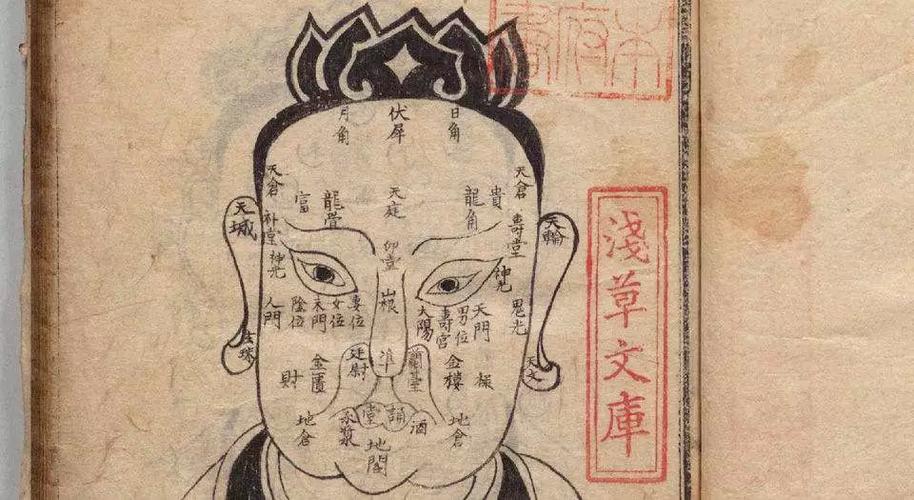 日角
伏犀
月角
天倉
貴
龍角
天庭
龍骨
富
天倉
天輪
壽堂
印堂
天城
神光
神光
鬼光
天門
男位
壽宮
太陽
山根
妻位
女位
陰位
人門
玄珠
天
金樓
蘭臺
準
廷尉
金匱
財
地倉
酒
堂
承漿
地倉
地閣
淺草文庫